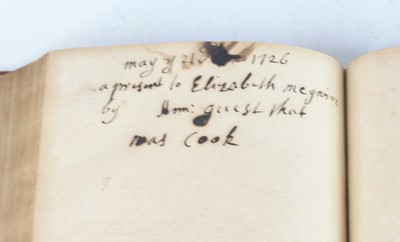 may y 21 1726
a present to Elizabeth
by Ann: guest that
was Cook